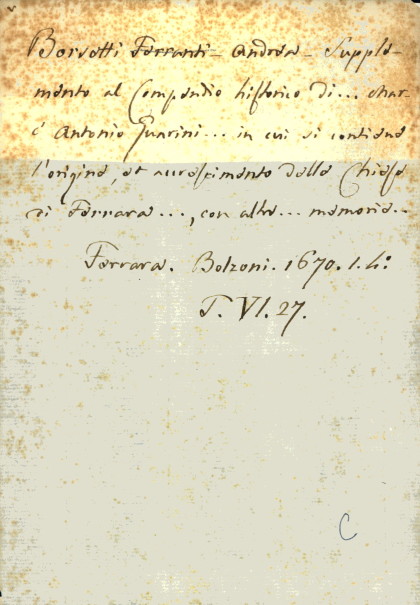 Borsetti Ferranti - Andrea - Supple-
mento al Compendio historico di... Mar-
c' Antonio Guarini... in cui si contiene
l'origine, et accrescimento delle Chiese
di Ferrara..., con altre... memorie..
Ferrara. Bolzoni. 1670. 1. 4:
T. VI. 27.
C